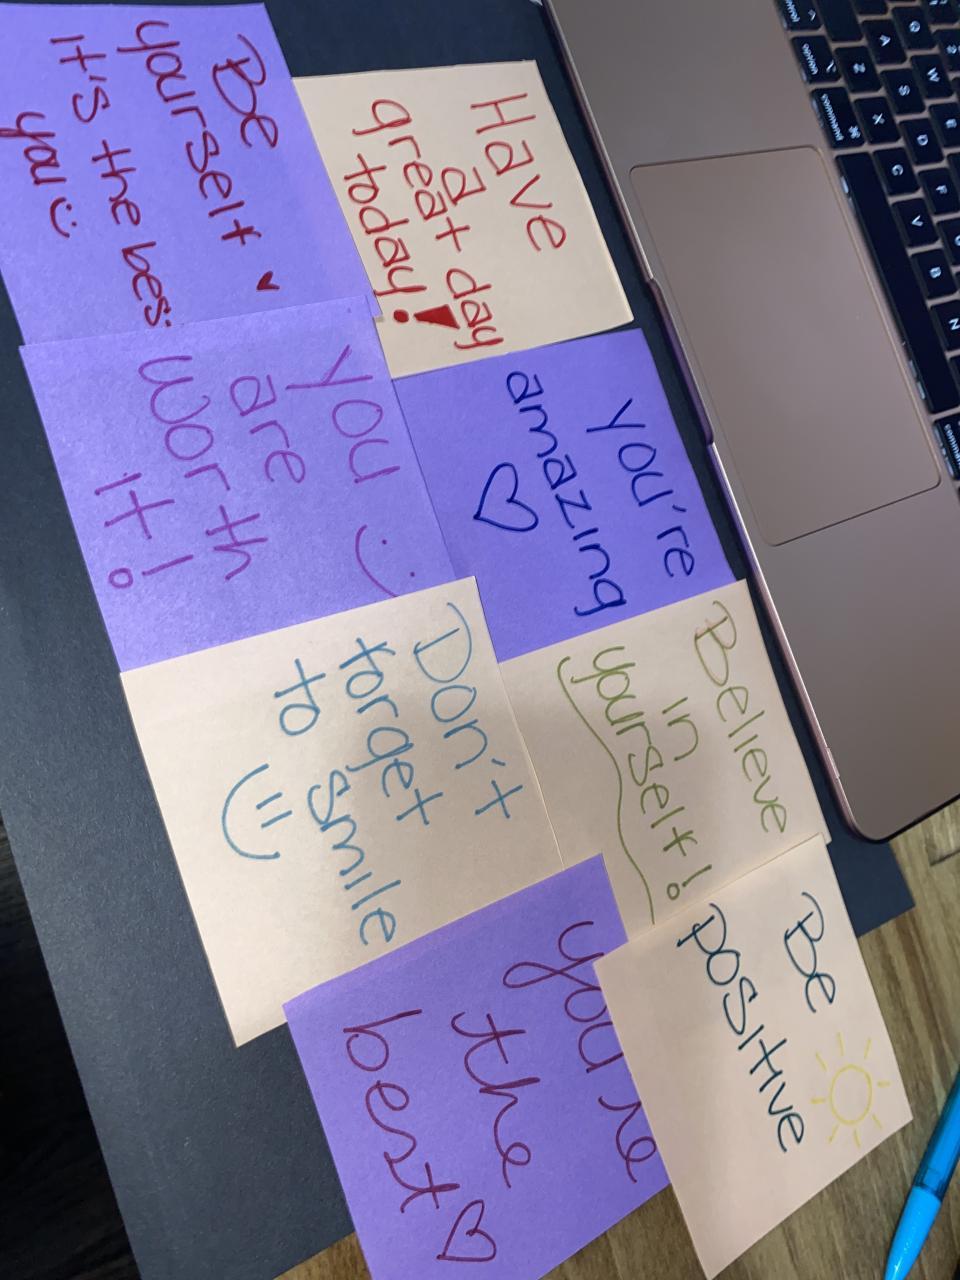 Have
a
great day
today!
you're
amazing
Believe
in
yourself!
Be
positive
Be
yourself
it's the bes
you
you
are
worth
it!
Don't
forget
to smile
you're
the
best
control
option
command
command
Q
W
E
A
S
D
F
Z
X
C
V
B
N